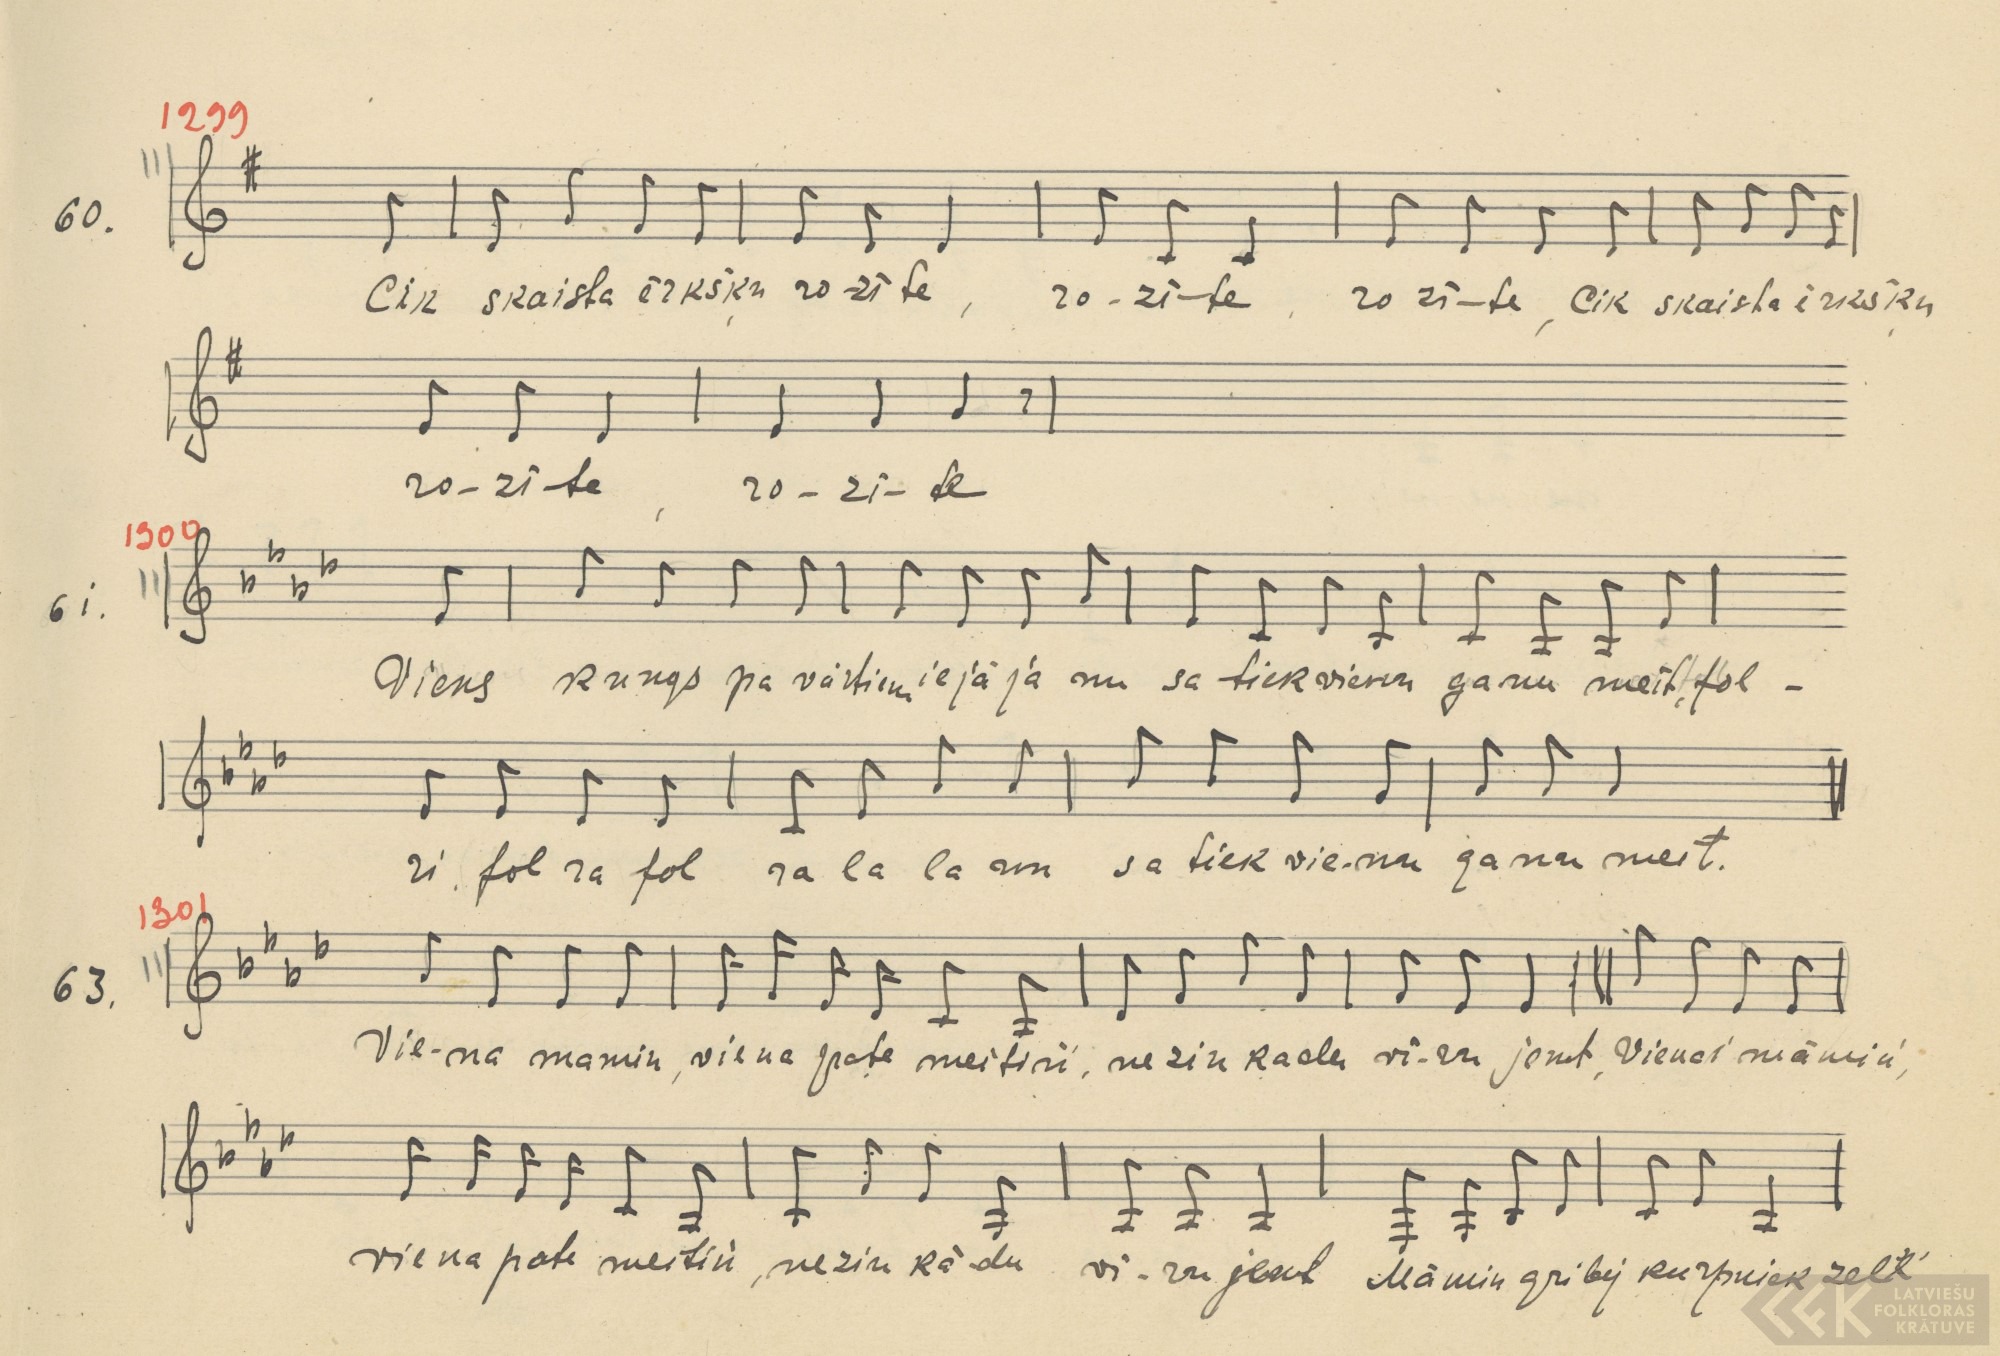 1299
60.
Cik skaista ērkšķu ro-zī te, ro-zī-te, ro zī-te, Cik skaista ērkšķu
ro-zī-te, ro-zī-te
1300
61.
Viens kungs pa vārtiem iejāja nu sa tiek vienu ganu meit, fol-
ri fol ra fol ra la la un sa tiek vie-nu ganu meit.
1301
63.
Vie-na mamiņ, viena pate meitiņ, nezin kadu vī-ru jemt, Vienai māmiņ,
viena pate meitiņ, nezin kā-du vī-ru jemt Māmiņ gribēj kurpniek zelli
LATVIEŠU
FOLKLORAS
KRĀTUVE